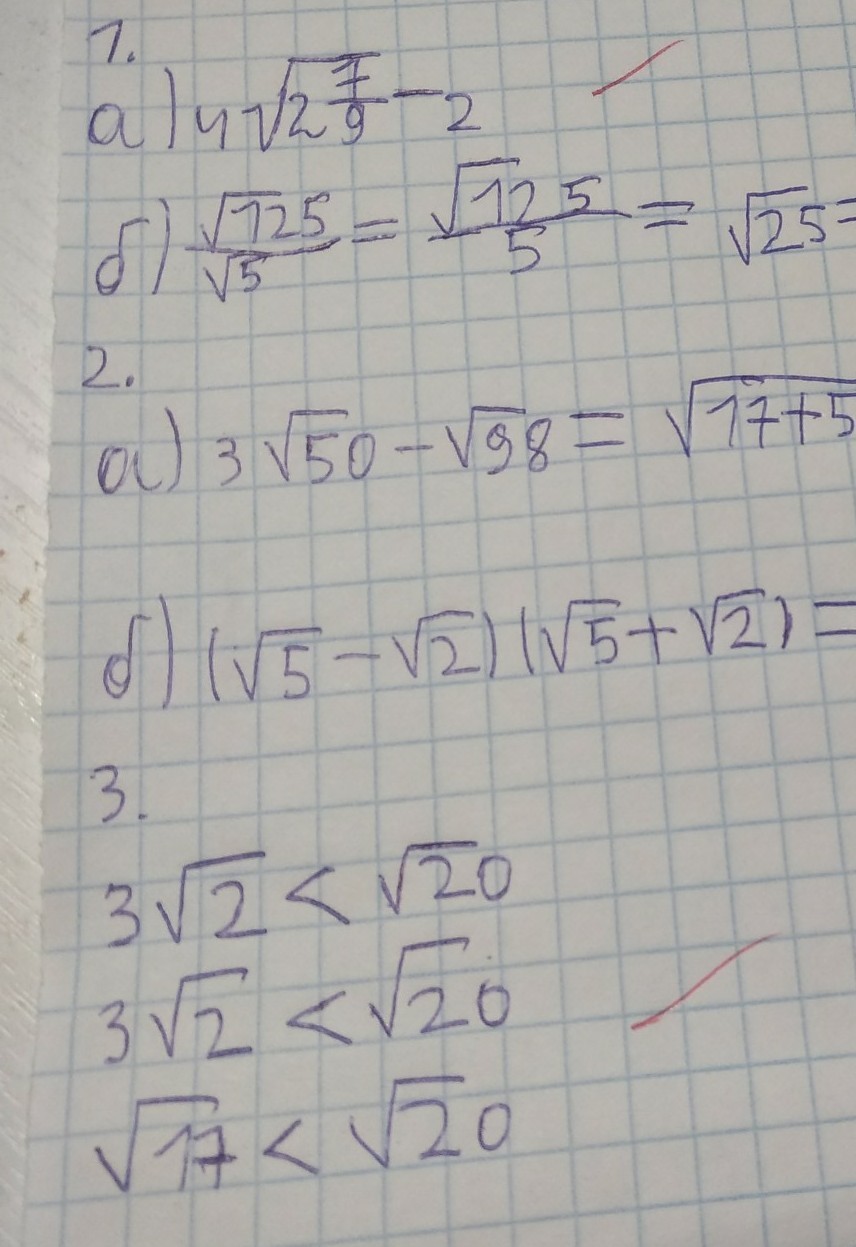 1.
а) 4√2 7/9 - 2
б) √125/√5 = √125/5 = √25 =
2.
а) 3√50 - √98 = √17+5
б) (√5 - √2)(√5 + √2) =
3.
3√2 < √20
3√2 < √20
√17 < √20